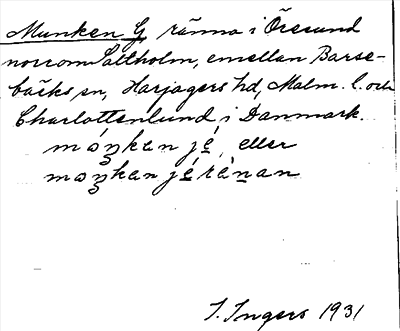 Munken G ränna i Öresund
norrom Saltholm, emellan Barse-
bäcks sn, Harjagers hd, Malm. l. och
Charlottenlund i Danmark.
eller
I. Ingers 1931